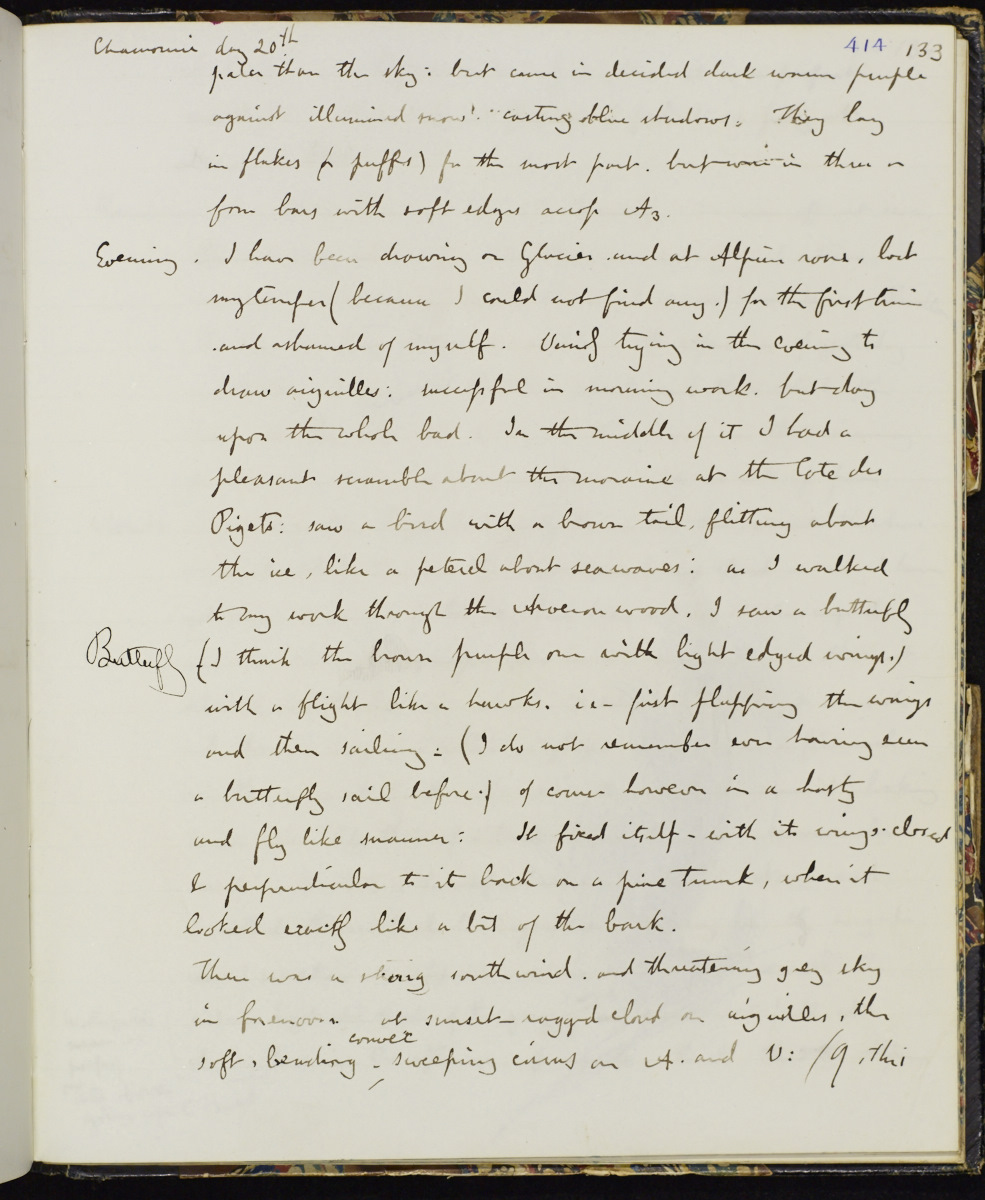 Chamouni day 20th 414 133
paler than the sky: but came in decided dark warm purple
against illumined snow: casting oblique shadows: They lay
in flakes (or puffs) for the most part. but in three or
four bars with soft edges across A3.
Evening. I have been drawing on Glacier and at Alpine rose, lost
my temper (because I could not find any.) for the first time
and ashamed of myself. Vainly trying in the evening to
draw aiguilles: successful in morning work. but day
upon the whole bad. In the middle of it I had a
pleasant scramble about the moraine at the Cote des
Pigets: saw a bird with a brown tail, flitting about
the ice, like a peterel about seawaves: as I walked
to my work through the Arveron wood, I saw a butterfly
Butterfly (I think the brown purple one with light edged wings.)
with a flight like a hawks. i.e- first flapping the wings
and then sailing: (I do not remember ever having seen
a butterfly sail before.) of course however in a hasty
and fly like manner: It fixed itself - with its wings closed
& perpendicular to its back on a pine trunk, when it
looked exactly like a bit of the bark.
There was a strong south wind. and threatening grey sky
in forenoon at sunset - ragged cloud on aiguilles, the
convex
soft, bending - sweeping cirrus on A. and V: /9, this